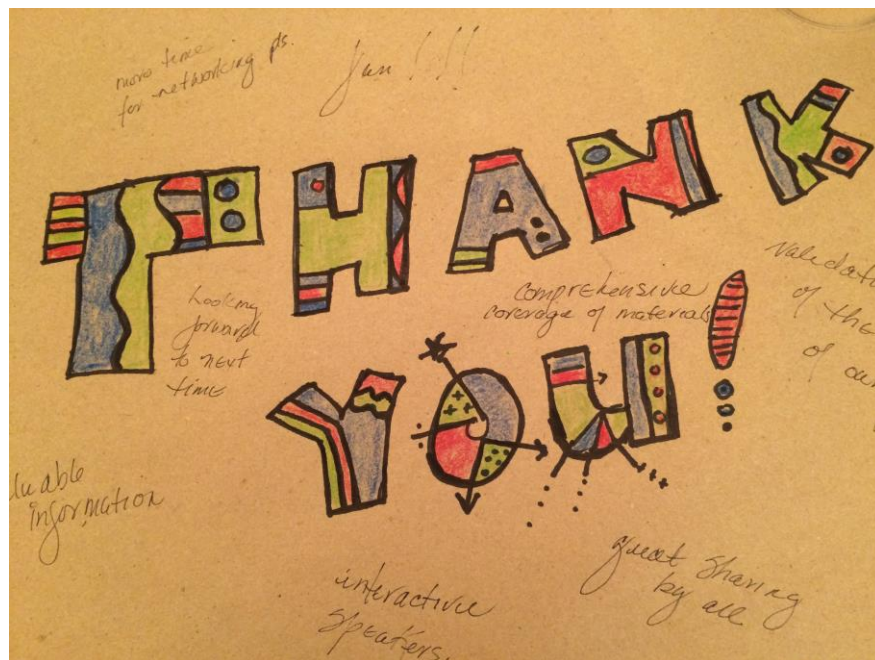 more time
for networking pls.
fun!!!
THANK
Looking
forward
to next
time
comprehensive
coverage of materials
of the
of
YOU!
information
interactive
speakers.
great sharing
by all